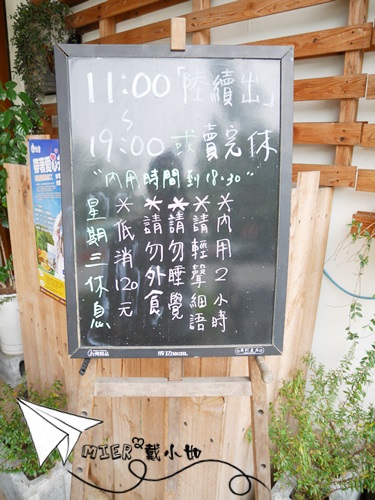 11:00「陸續出」
~
19:00 或賣完休
"內用時間到18:30"
*內用2小時
*請輕聲細語
*請勿睡覺
*請勿外食
*低消120元
星期三休息
成功
MIER*戴小如